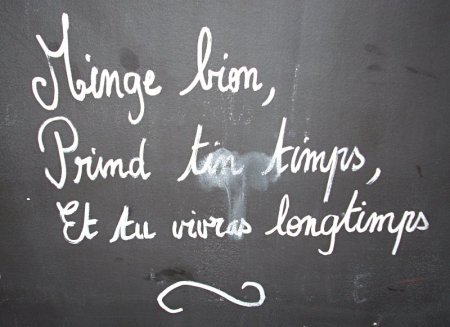 Minge bion,
Prind tin timps,
Et tu vivras longtimps